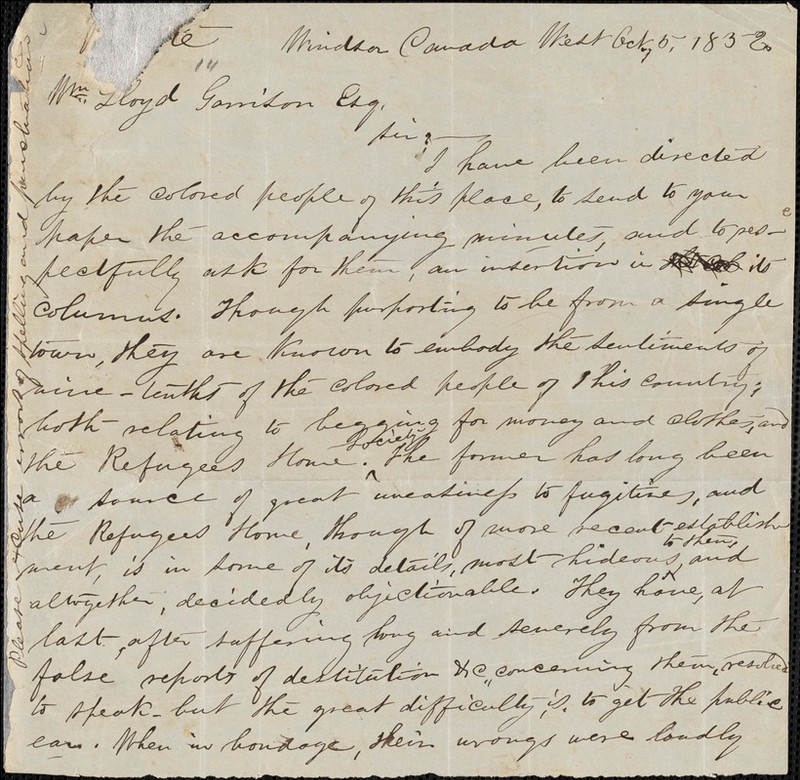 Windsor Canada West Oct, 5, 1852.
Wm. Lloyd Garrison Esq.
Sir:
I have been directed
by the colored people of this place, to send to your
paper the accompanying minutes, and to res-
pectfully ask for them, an insertion in its
columns. Though purporting to be from a single
town, they are known to embody the sentiments of
nine-tenths of the colored people of this country;
both relating to begging for money and clothes, and
the Refugees Home Society. The former has long been
a source of great uneasiness to fugitives, and
the Refugees Home, though of more recent establish
ment, is in some of its details, most hideous to them, and
altogether, decidedly objectionable. They have, at
last, after suffering long and severely from the
false reports of destitution &c, concerning them, resolved
to speak - but the great difficulty is, to get the public
ear. When in bondage, their wrongs were loudly
Please excuse errors of spelling and punctuation